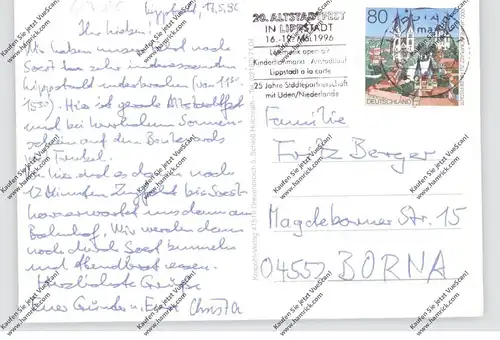 Lippstadt, 17.5.96
Ihr Lieben!
Wir haben unsere Fahrt nach
Soest im sehr interessanten
Lippstadt unterbrochen (von 11³⁰
15³⁰). Hier ist gerade Altstadtfest
und bei herrlichem Sonnen-
schein auf den Boulevards
viel Trubel.
sind es dann noch
12 Minuten Zugfahrt bis Soest
uns dann am
Bahnhof. Wir werden dann
noch durch Soest bummeln
und Abendbrot essen.
Herzlichste Grüsse
Eurer Christa
20. ALTSTADTFEST
IN LIPPSTADT
16.-19. Mai 1996
open air
Kinderflohmarkt Altstadtlauf
Lippstadt a la carte
25 Jahre Städtepartnerschaft
mit Uden/Niederlande
80
DEUTSCHLAND
Familie
Fritz Berger
Magdeborner Str. 15
04552 BORNA
Kaufen Sie jetzt VueScan!
www.hamrick.com